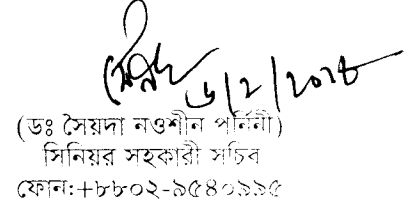 ৬/২/২০১৪
(ডঃ সৈয়দা নওশীন পর্নিনী)
সিনিয়র সহকারী সচিব
ফোন:+৮৮০২-৯৫৪০৯৯৫